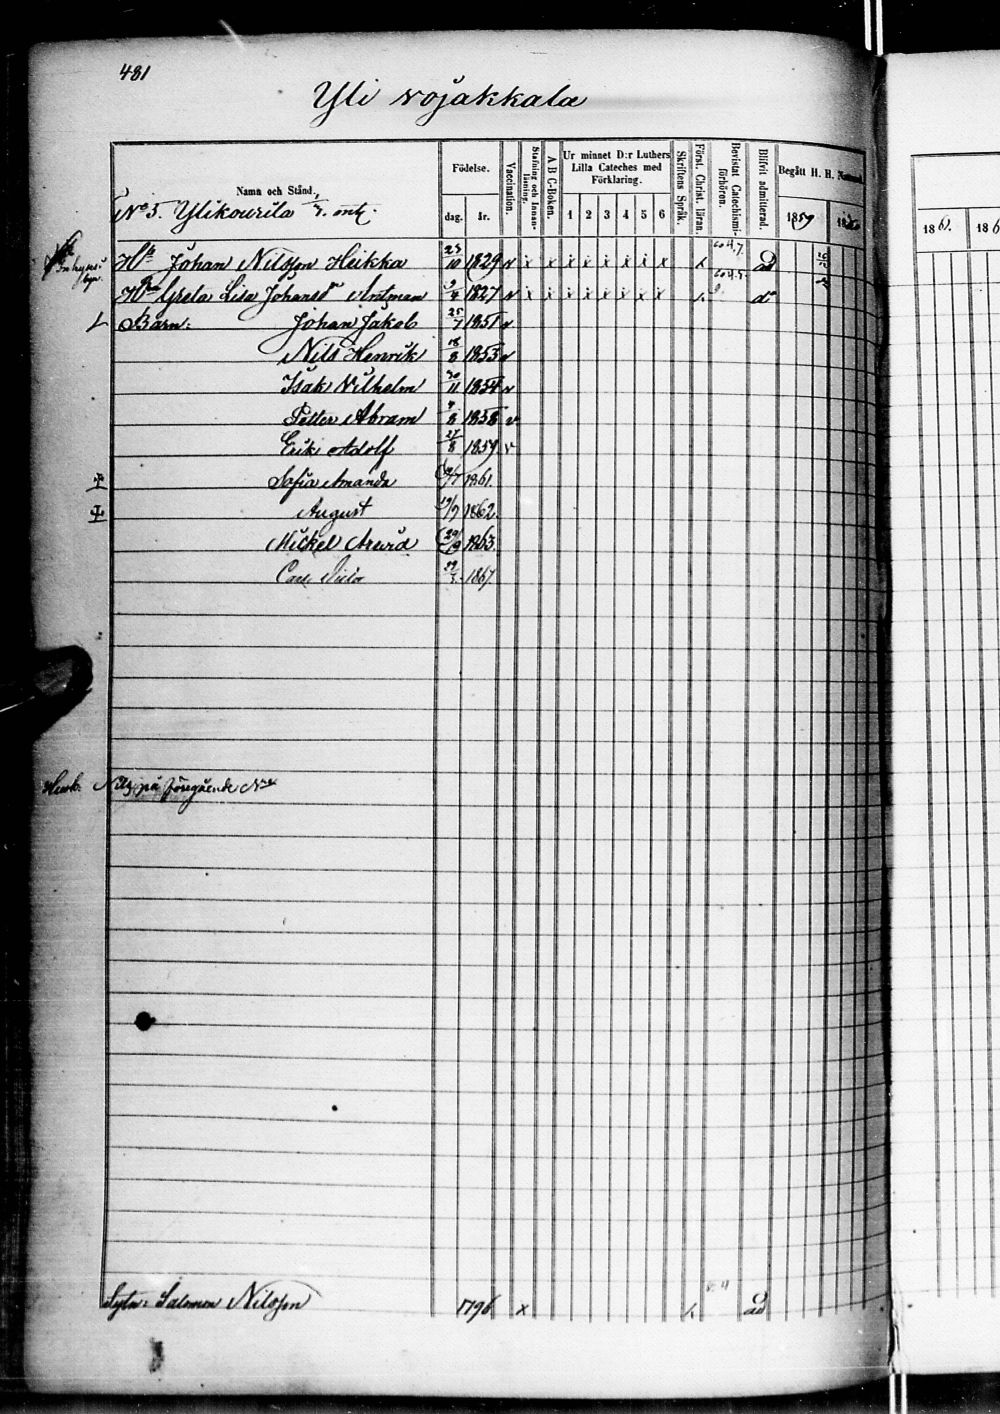 481
Yli vojakkala
Namn och Stånd.
Födelse.
dag. år.
Vaccination.
Stafning och Innan-läsning.
A B C-Boken.
Ur minnet D:r Luthers Lilla Cateches med Förklaring.
1 2 3 4 5 6
Skriftens Språk.
Först. Christ. läran.
Bevistat Catechismi-förhören.
Blifvit admitterad.
Begått H. H. Nattvard.
1859 1860 1861 186
No 5. Ylikourila mtl.
Johan Nilsson Heikka 23/10 1829 v x x x x x x x x x ad
Greta Lisa Johansdr Antman 9/4 1827 v x x x x x x x x x do
L Barn: Johan Jakob 25/7 1851 v
Nils Henrik 18/8 1853 v
Isak Vilhelm 30/11 1854 v
Petter Abram 8 1858 v
Erik Adolf 27/8 1859 v
Sofia Amanda /7 1861.
August 19/9 1862.
Mickel Arvid 29/9 1863.
Carl 22 1867
Husb. Nils på föregående No
Sytn: Salomon Nilsson 1796 x ad